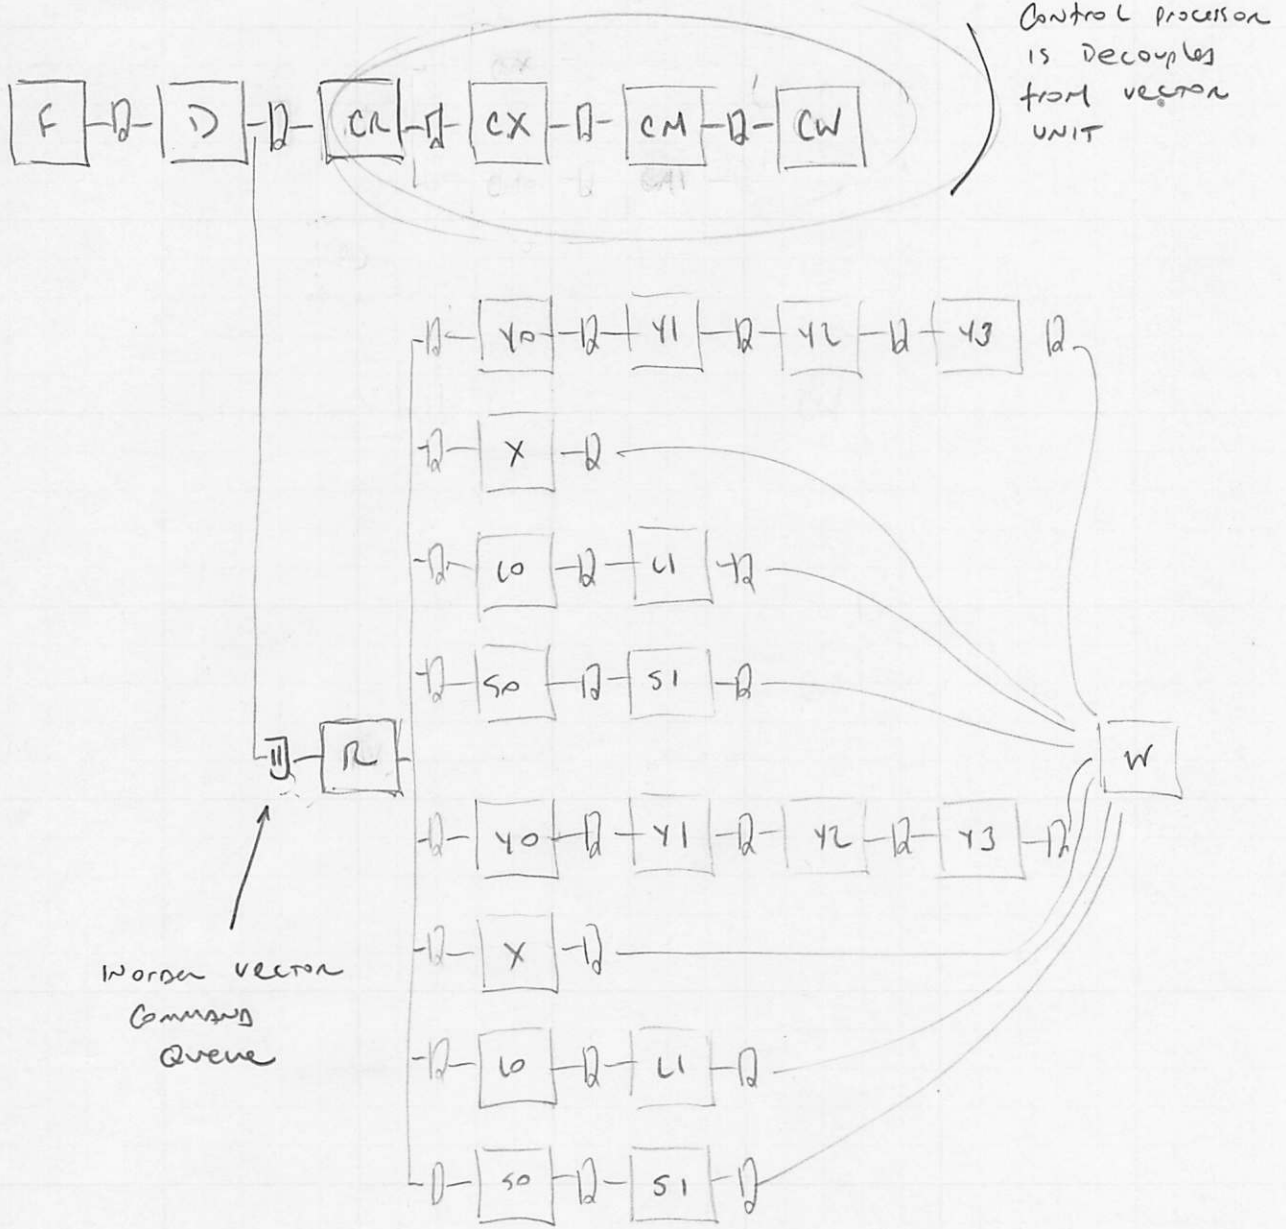 Control processor
is Decouples
from vector
UNIT
F D CR CX CM CW
Y0 Y1 Y2 Y3
X
L0 L1
S0 S1
R
W
Y0 Y1 Y2 Y3
X
Inorder vector
Command
Queue
L0 L1
S0 S1